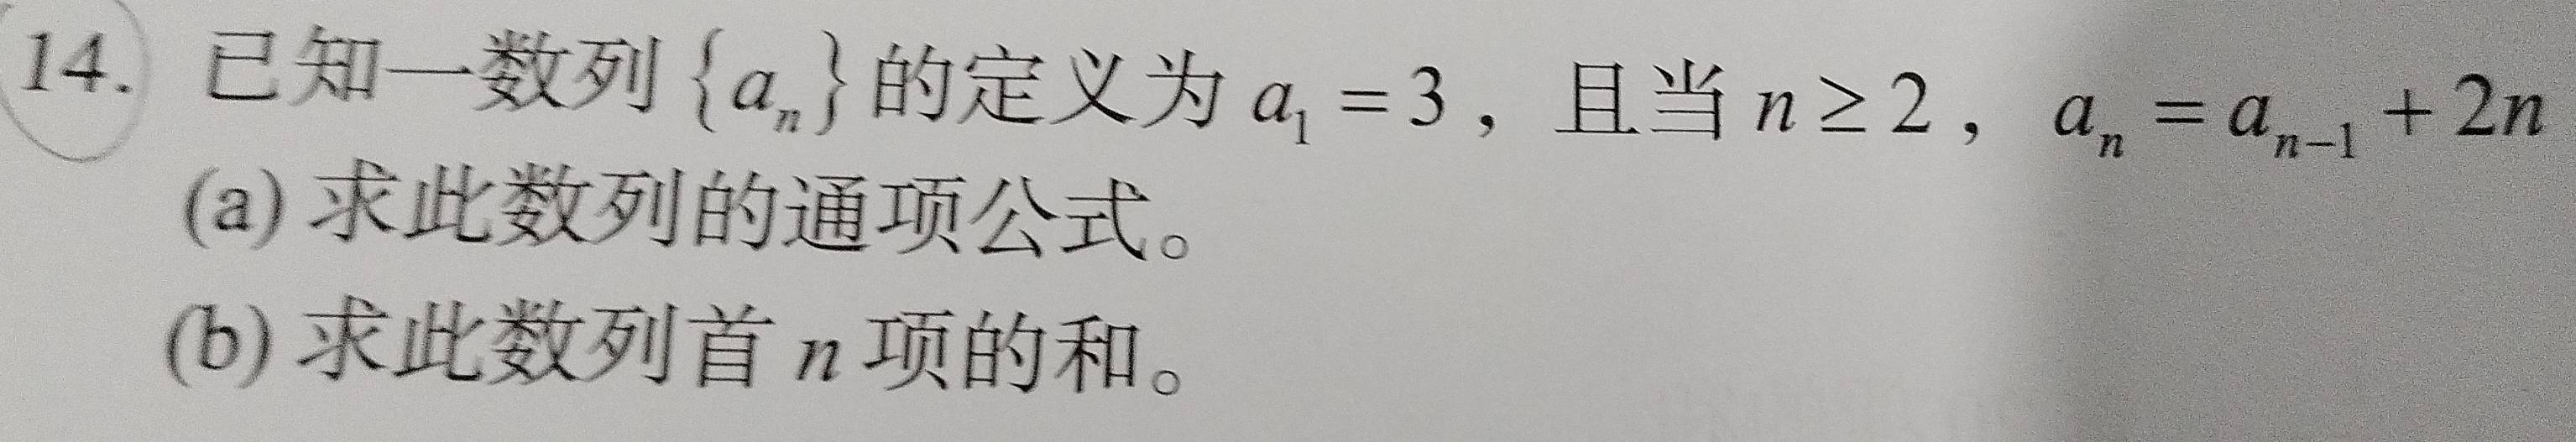 14. 已知一数列 {aₙ} 的定义为 a₁ = 3，且当 n ≥ 2，aₙ = aₙ₋₁ + 2n
(a) 求此数列的通项公式。
(b) 求此数列首 n 项的和。